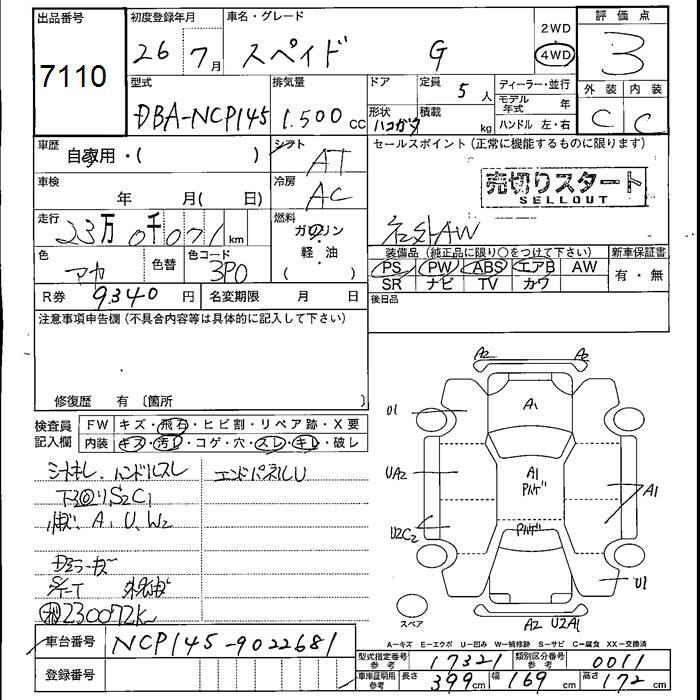 出品番号
7110
初度登録年月
26年7月
車名・グレード
スペイド G
2WD
4WD
評価点
3
外装 内装
C C
型式
DBA-NCP145
排気量
1.500cc
ドア
形状
ハコガタ
定員
5人
積載
kg
ディーラー・並行
モデル年式 年
ハンドル 左・右
車歴
自家用・( )
シフト
AT
セールスポイント (正常に機能するものに限ります)
売切りスタート
SELLOUT
車検
年 月( 日)
冷房
AC
走行
23万0千071km
燃料
ガソリン
軽・油
( )
社外AW
色
アカ
色替
色コード
3P0
装備品 (純正品に限り○をつけて下さい)
PS PW ABS エアB AW
SR ナビ TV カワ
新車保証書
有・無
R券 9340円
名変期限 月 日
後日品
注意事項申告欄 (不具合内容等は具体的に記入して下さい)
修復歴 有 〔箇所 〕
検査員記入欄
FW キズ・飛石・ヒビ割・リペア跡・X要
内装 キズ・汚レ・コゲ・穴・スレ・キレ・破レ
シートキレ、ハンドルスレ
エンドパネルU
下回りS2C1
A1 U1 W2
Dミラーキズ
230072K
A2 A2
A1
U1
UA2
A1
U2C2
A1
U1
A2 U2A1
スペア
A=キズ E=エクボ U=凹み W=補修跡 S=サビ C=腐食 XX=交換済
車台番号
NCP145-9022681
登録番号
型式指定番号 参考
17321
類別区分番号 参考
0011
車庫証明用 参考
長さ 399cm 幅 169cm 高さ 172cm